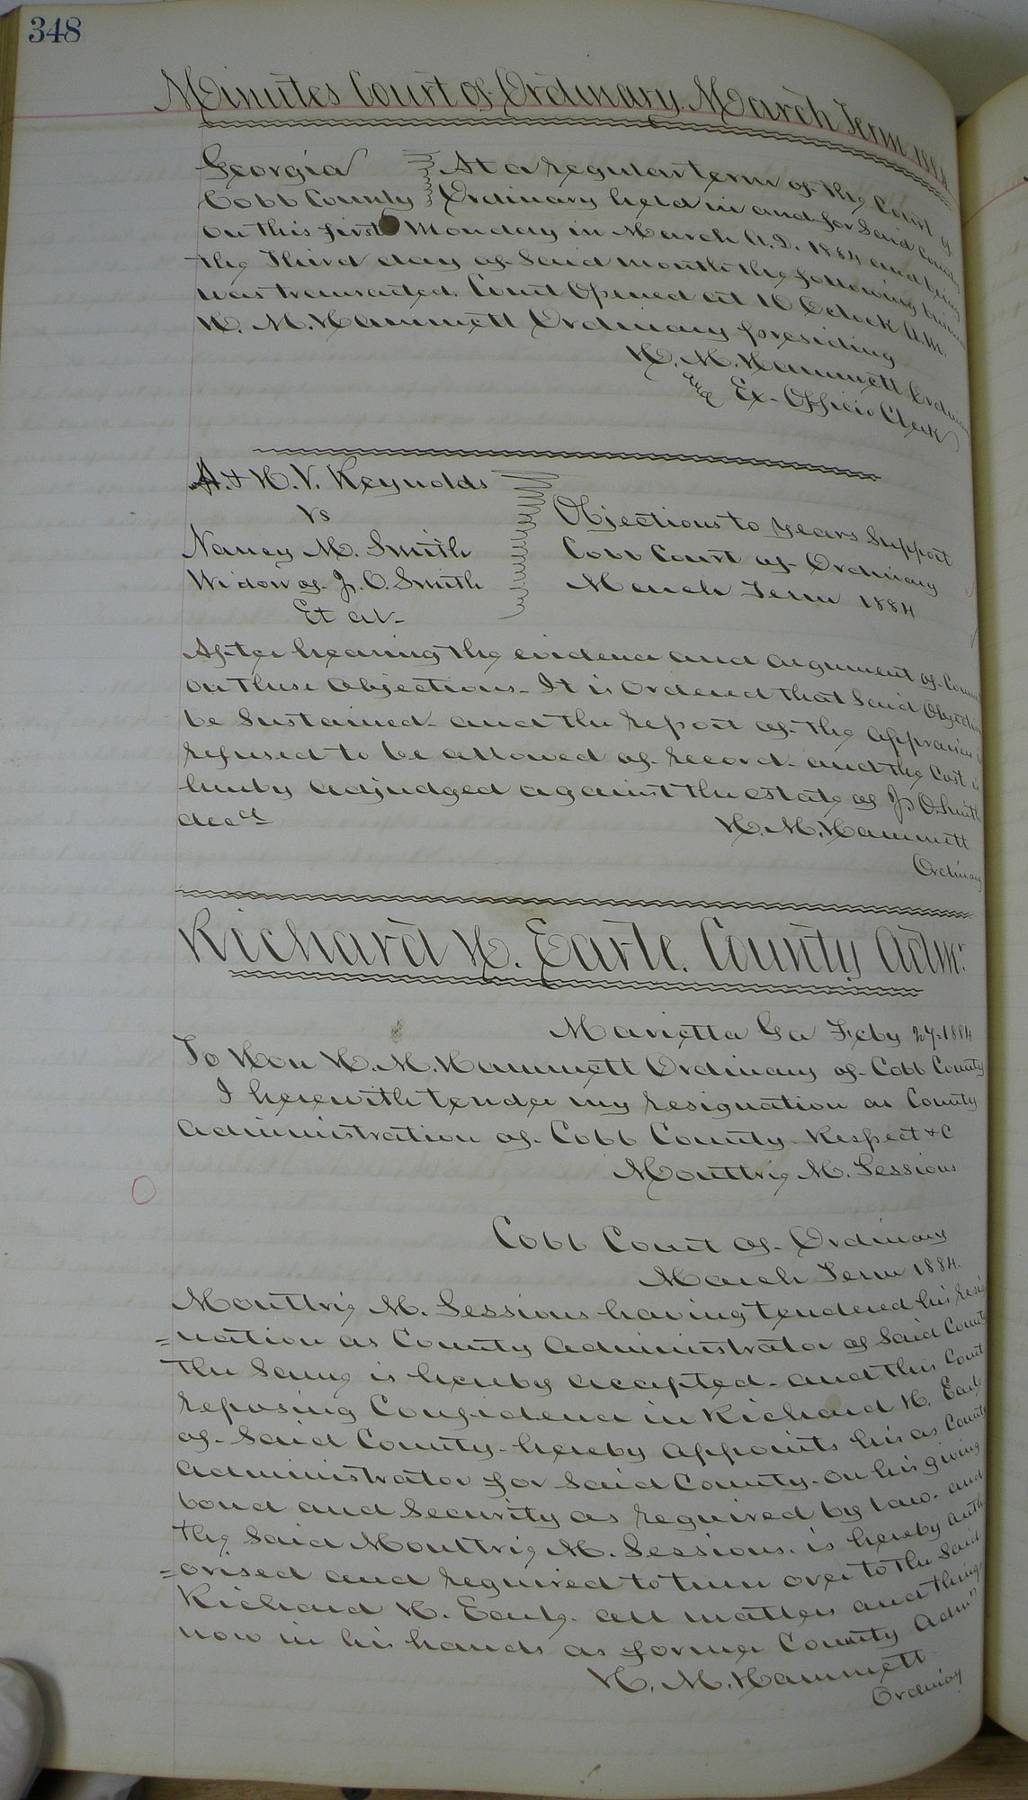 348
Minutes Court of Ordinary March Term 1884
Georgia At a regular term of the Court of
Cobb County Ordinary held in and for said County
on this first Monday in March A.D. 1884 and being
the Third day of said month the following business
was transacted. Court Opened at 10 Oclock A.M.
H. M. Hammett Ordinary presiding
H. M. Hammett Ordinary
Ex-Officio Clerk
A. & H. V. Reynolds
vs
Nancy M. Smith
Widow of J. O. Smith
Et al-
Objections to years Support
Cobb Court of Ordinary
March Term 1884
After hearing the evidence and argument of
on these Objections- It is Ordered that said Objections
be Sustained- and the report of the appraisers
refused to be allowed of record- and the Cost is
hereby adjudged against the estate of J. O. Smith
decd
H. M. Hammett
Ordinary
Richard H. Earle. County Admr.
Marietta Ga Feby 27-1884
To Hon H. M. Hammett Ordinary of Cobb County
I herewith tender my resignation as County
Administration of Cobb County. Respect &C
Moultrie M. Sessions
Cobb Court of Ordinary
March Term 1884.
Moultrie M. Sessions having tendered his resig
=nation as County Administrator of said County
the same is hereby accepted- and this Court
reposing Confidence in Richard H. Earle
of said County- hereby appoints his as County
Administrator for said County- on his giving
bond and security as required by law- and
the said Moultrie M. Sessions. is hereby auth
=orised and required to turn over to the said
Richard H. Earle. all matters and things
now in his hands as former County Admr
H. M. Hammett
Ordinary